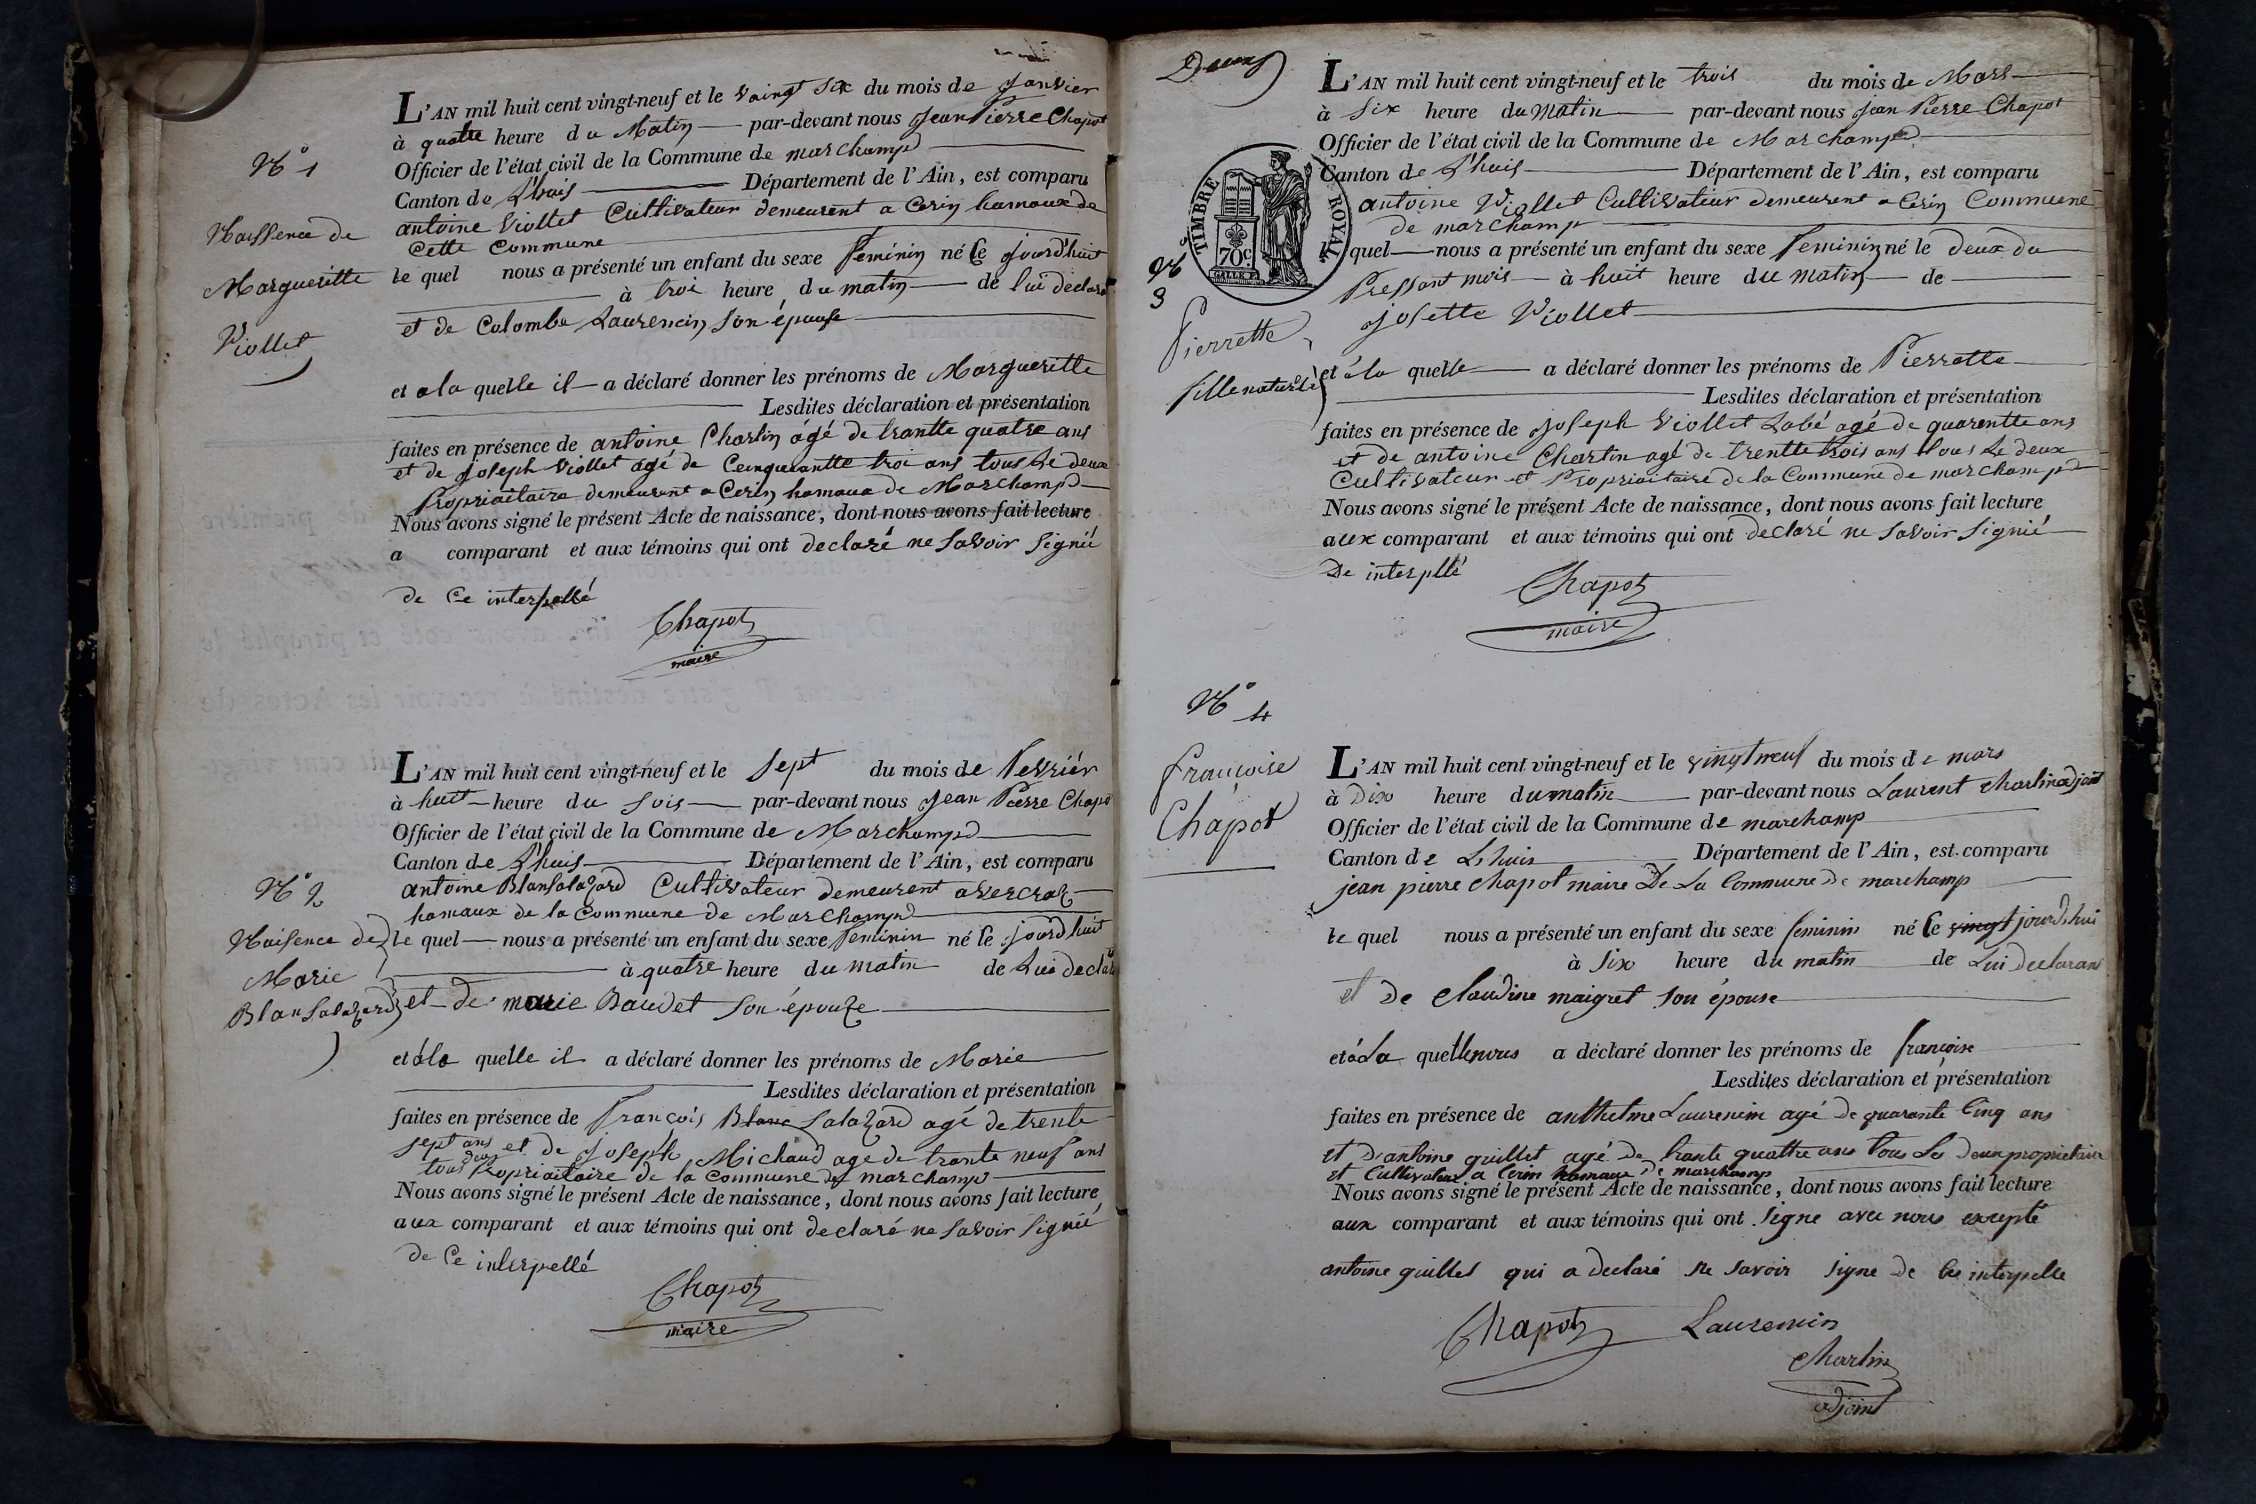 N° 1
Naissence de
Margueritte
Viollet
L'AN mil huit cent vingt-neuf et le vaingt six du mois de Janvier
à quatre heure du Matin par-devant nous Jean Pierre Chapot
Officier de l'état civil de la Commune de marchamp
Canton de L'huis Département de l'Ain, est comparu
antoine Viollet Cultivateur demeurent a Cerin hamaux de
Cette Commune
le quel nous a présenté un enfant du sexe feminin né le jourd'huit
à troi heure du matin de lui declarat
et de Colombe Laurencin son épouse
et a la quelle il a déclaré donner les prénoms de Margueritte
Lesdites déclaration et présentation
faites en présence de antoine Charlin ágé de trantte quatre ans
et de joseph Viollet agé de Cenquantte troi ans tous le deux
Propriaitaire demeurent a Cerin hamaux de Marchamp
Nous avons signé le présent Acte de naissance, dont nous avons fait lecture
a comparant et aux témoins qui ont declaré ne savoir signié
de Ce interpellé
Chapot
maire
N° 2
Naisence de
Marie
Blan Salazard
L'AN mil huit cent vingt-neuf et le sept du mois de Fevriér
à huit heure du soir par-devant nous Jean Pierre Chapot
Officier de l'état civil de la Commune de Marchamp
Canton de L'huis Département de l'Ain, est comparu
antoine Blansalazard Cultivateur demeurent a vercraz
hamaux de la Commune de Marchamp
le quel nous a présenté un enfant du sexe feminin né le jourd'huit
à quatre heure du matin de Lui declarat
et de marie Baudet son épouze
et á la quelle il a déclaré donner les prénoms de Marie
Lesdites déclaration et présentation
faites en présence de François Blanc Salazard agé de trente
sept ans et de Joseph Michaud age de trante neuf ans
tous deux Propriaitaire de la Commune de marchamp
Nous avons signé le présent Acte de naissance, dont nous avons fait lecture
aux comparant et aux témoins qui ont declaré ne savoir signié
de Ce interpellé
Chapot
maire
Deux
TIMBRE ROYAL
70c.
N° 3
Pierrette
fille naturelle
L'AN mil huit cent vingt-neuf et le trois du mois de Mars
à six heure du matin par-devant nous Jean Pierre Chapot
Officier de l'état civil de la Commune de Marchamp
Canton de L'huis Département de l'Ain, est comparu
antoine Viollet Cultivateur demeurent a Cerin Commune
de marchamp
quel nous a présenté un enfant du sexe feminin né le deux du
Pressant mois à huit heure du matin de
josette Viollet
et á la quelle a déclaré donner les prénoms de Pierrette
Lesdites déclaration et présentation
faites en présence de joseph Viollet Labé agé de quarentte ans
et de antoine Charlin agé de trentte trois ans tous le deux
Cultivateur et Propriaitaire de la Commune de marchamp
Nous avons signé le présent Acte de naissance, dont nous avons fait lecture
aux comparant et aux témoins qui ont declaré ne savoir signié
De interpllé
Chapot
maire
N° 4
françoise
Chapot
L'AN mil huit cent vingt-neuf et le vingt neuf du mois de mars
à Dix heure du matin par-devant nous Laurent Charlin adjoint
Officier de l'état civil de la Commune de marchamp
Canton de Lhuis Département de l'Ain, est comparu
jean pierre chapot maire De La Commune de marchamp
le quel nous a présenté un enfant du sexe feminin né le vingt jourd'hui
à six heure du matin de Lui declarant
et De claudine maigret son épouse
et á La quelle nous a déclaré donner les prénoms de françoise
Lesdites déclaration et présentation
faites en présence de anthelme Laurencin agé de quarante Cinq ans
et d'antoine guillet agé de trante quattre ans tous les deux proprietaire
et Cultivateur a Cerin hamaux de marchamp
Nous avons signé le présent Acte de naissance, dont nous avons fait lecture
aux comparant et aux témoins qui ont signe avec nous excepté
antoine guillet qui a declaré ne savoir signe de Ce interpelle
Chapot Laurencin
Charlin
adjoint